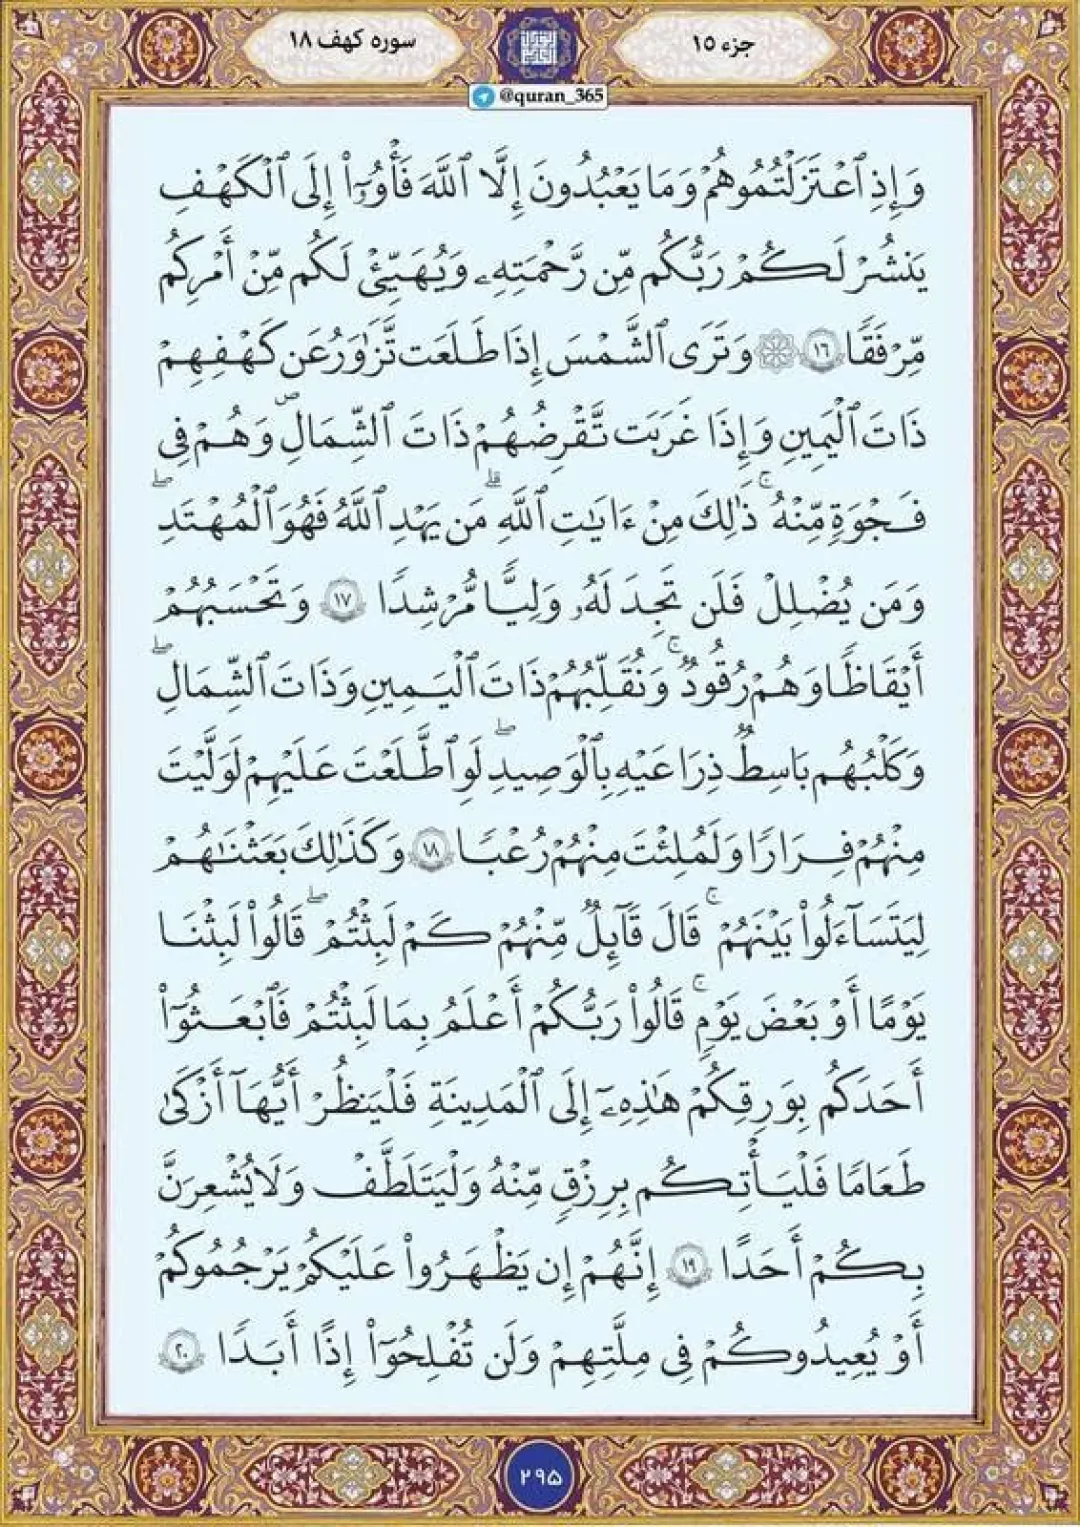 جزء ۱۵
سوره کهف ۱۸
@quran_365
وَإِذِ ٱعْتَزَلْتُمُوهُمْ وَمَا يَعْبُدُونَ إِلَّا ٱللَّهَ فَأْوُۥٓا۟ إِلَى ٱلْكَهْفِ
يَنشُرْ لَكُمْ رَبُّكُم مِّن رَّحْمَتِهِۦ وَيُهَيِّئْ لَكُم مِّنْ أَمْرِكُم
مِّرْفَقًا ۱۶ ۞ وَتَرَى ٱلشَّمْسَ إِذَا طَلَعَت تَّزَٰوَرُ عَن كَهْفِهِمْ
ذَاتَ ٱلْيَمِينِ وَإِذَا غَرَبَت تَّقْرِضُهُمْ ذَاتَ ٱلشِّمَالِ وَهُمْ فِى
فَجْوَةٍ مِّنْهُ ۚ ذَٰلِكَ مِنْ ءَايَٰتِ ٱللَّهِ ۗ مَن يَهْدِ ٱللَّهُ فَهُوَ ٱلْمُهْتَدِ ۖ
وَمَن يُضْلِلْ فَلَن تَجِدَ لَهُۥ وَلِيًّا مُّرْشِدًا ۱۷ وَتَحْسَبُهُمْ
أَيْقَاظًا وَهُمْ رُقُودٌ ۚ وَنُقَلِّبُهُمْ ذَاتَ ٱلْيَمِينِ وَذَاتَ ٱلشِّمَالِ ۖ
وَكَلْبُهُم بَاسِطٌ ذِرَاعَيْهِ بِٱلْوَصِيدِ ۖ لَوِ ٱطَّلَعْتَ عَلَيْهِمْ لَوَلَّيْتَ
مِنْهُمْ فِرَارًا وَلَمُلِئْتَ مِنْهُمْ رُعْبًا ۱۸ وَكَذَٰلِكَ بَعَثْنَٰهُمْ
لِيَتَسَآءَلُوا۟ بَيْنَهُمْ ۚ قَالَ قَآئِلٌ مِّنْهُمْ كَمْ لَبِثْتُمْ ۖ قَالُوا۟ لَبِثْنَا
يَوْمًا أَوْ بَعْضَ يَوْمٍ ۚ قَالُوا۟ رَبُّكُمْ أَعْلَمُ بِمَا لَبِثْتُمْ فَٱبْعَثُوٓا۟
أَحَدَكُم بِوَرِقِكُمْ هَٰذِهِۦٓ إِلَى ٱلْمَدِينَةِ فَلْيَنظُرْ أَيُّهَآ أَزْكَىٰ
طَعَامًا فَلْيَأْتِكُم بِرِزْقٍ مِّنْهُ وَلْيَتَلَطَّفْ وَلَا يُشْعِرَنَّ
بِكُمْ أَحَدًا ۱۹ إِنَّهُمْ إِن يَظْهَرُوا۟ عَلَيْكُمْ يَرْجُمُوكُمْ
أَوْ يُعِيدُوكُمْ فِى مِلَّتِهِمْ وَلَن تُفْلِحُوٓا۟ إِذًا أَبَدًا ۲۰
۲۹۵